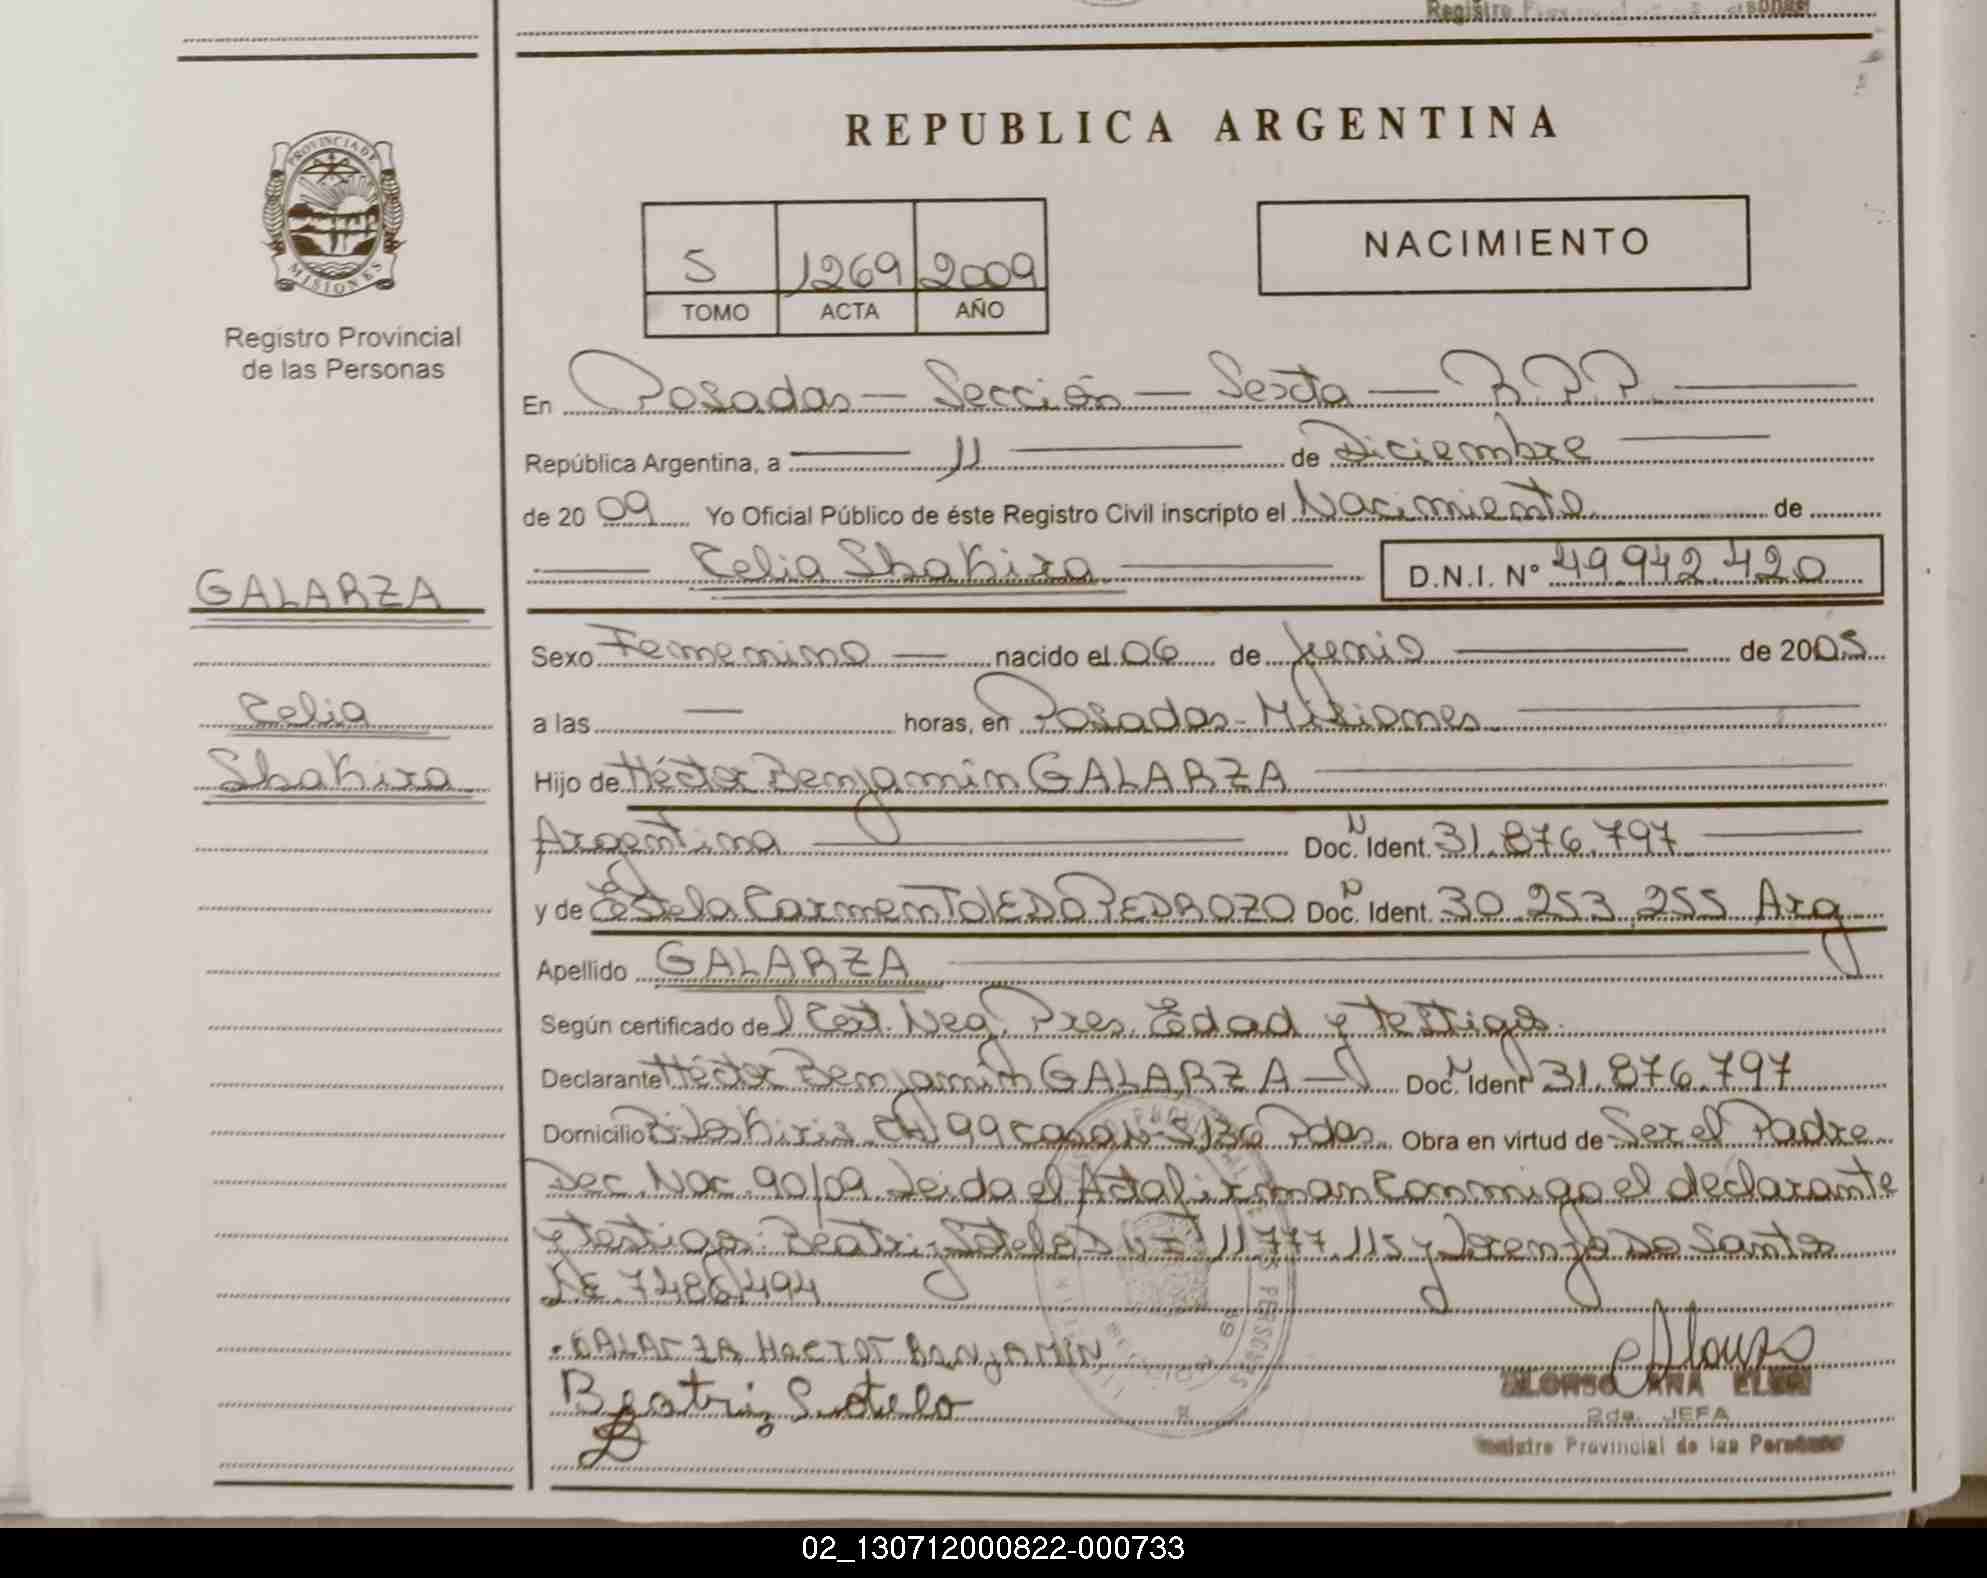 REPUBLICA ARGENTINA
PROVINCIA DE MISIONES
Registro Provincial
de las Personas
5 1269 2009
TOMO ACTA AÑO
NACIMIENTO
En Posadas — Sección — Sexta — R.P.P.
República Argentina, a 11 de Diciembre
de 2009 Yo Oficial Público de éste Registro Civil inscripto el Nacimiento de
Celia Shakira D.N.I. Nº 49.942.420
GALARZA
Celia
Shakira
Sexo Femenino — nacido el 06 de Junio de 2005
a las — horas, en Posadas - Misiones
Hijo de Héctor Benjamín GALARZA
Argentina Doc. Ident. 31.876.797
y de Estela Carmen TOLEDO PEDROZO Doc. Ident. 30.253.255 Arg
Apellido GALARZA
Según certificado del Cert. Neg. Pres. Edad y testigos
Declarante Héctor Benjamín GALARZA — Doc. Ident 31.876.797
Domicilio 99 casa Pdas. Obra en virtud de Ser el Padre
Dec. Nac. 90/09. Leida el Acta firman conmigo el declarante
y testigos: Beatriz Sotelo 11.777.115 y Lorenzo Do Santos
LE. 7486494
GALARZA HECTOR BENJAMIN
Beatriz Sotelo
Alonso
ALONSO ANA
2da. JEFA
Registro Provincial de las Personas
02_130712000822-000733